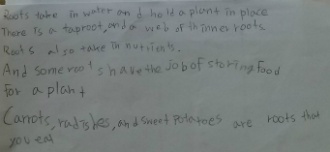 Roots take in water and hold a plant in place
There is a taproot, and a web of thinner roots
Roots also take in nutrients.
And some roots have the job of storing food
for a plant
Carrots, radishes, and sweet potatoes are roots that
you eat